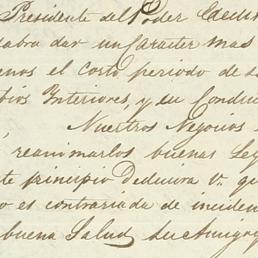 Presidente del Poder Ejecu
dar un Caracter mas
enos el corto periodo de s
bios Interiores, y su Condu
Nuestros Negocios
, reanimarlos buenas Leg
te principio Dedusca V. qu
o es contrariada de inciden
buena Salud su Amigo